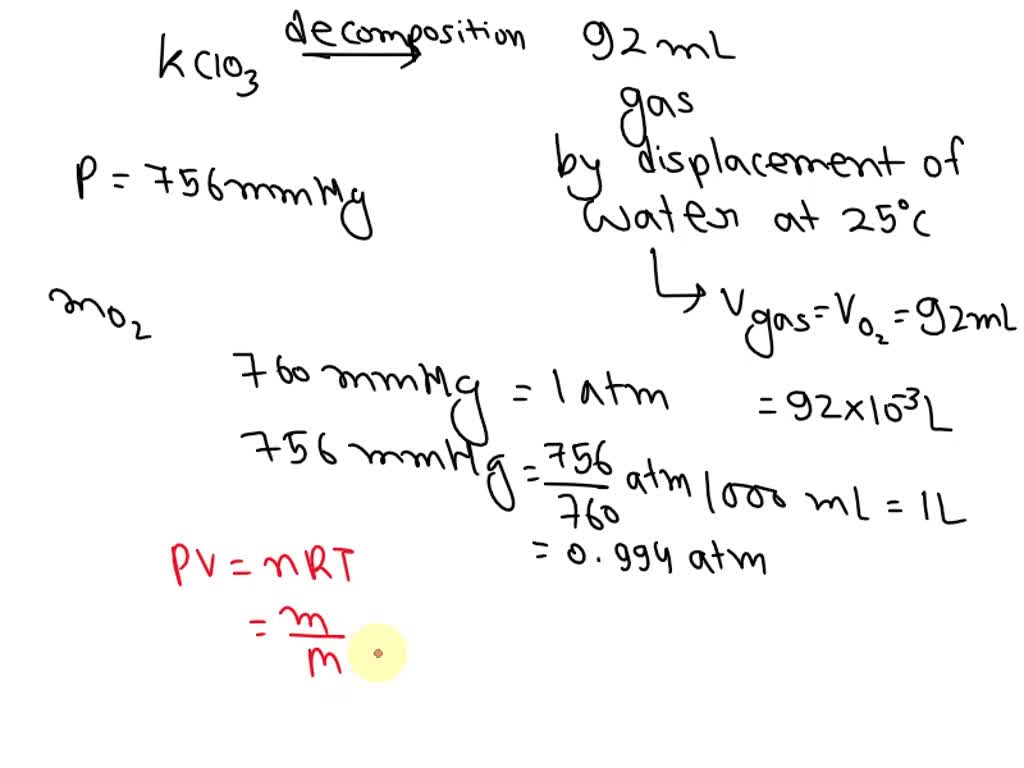 KClO3 decomposition → 92mL
gas
by displacement of
water at 25°C
P = 756mmHg
↳ Vgas = VO2 = 92mL
= 92×10⁻³L
mO2
760 mmHg = 1 atm
756 mmHg = 756/760 atm
1000 mL = 1L
= 0.994 atm
PV = nRT
= m/M